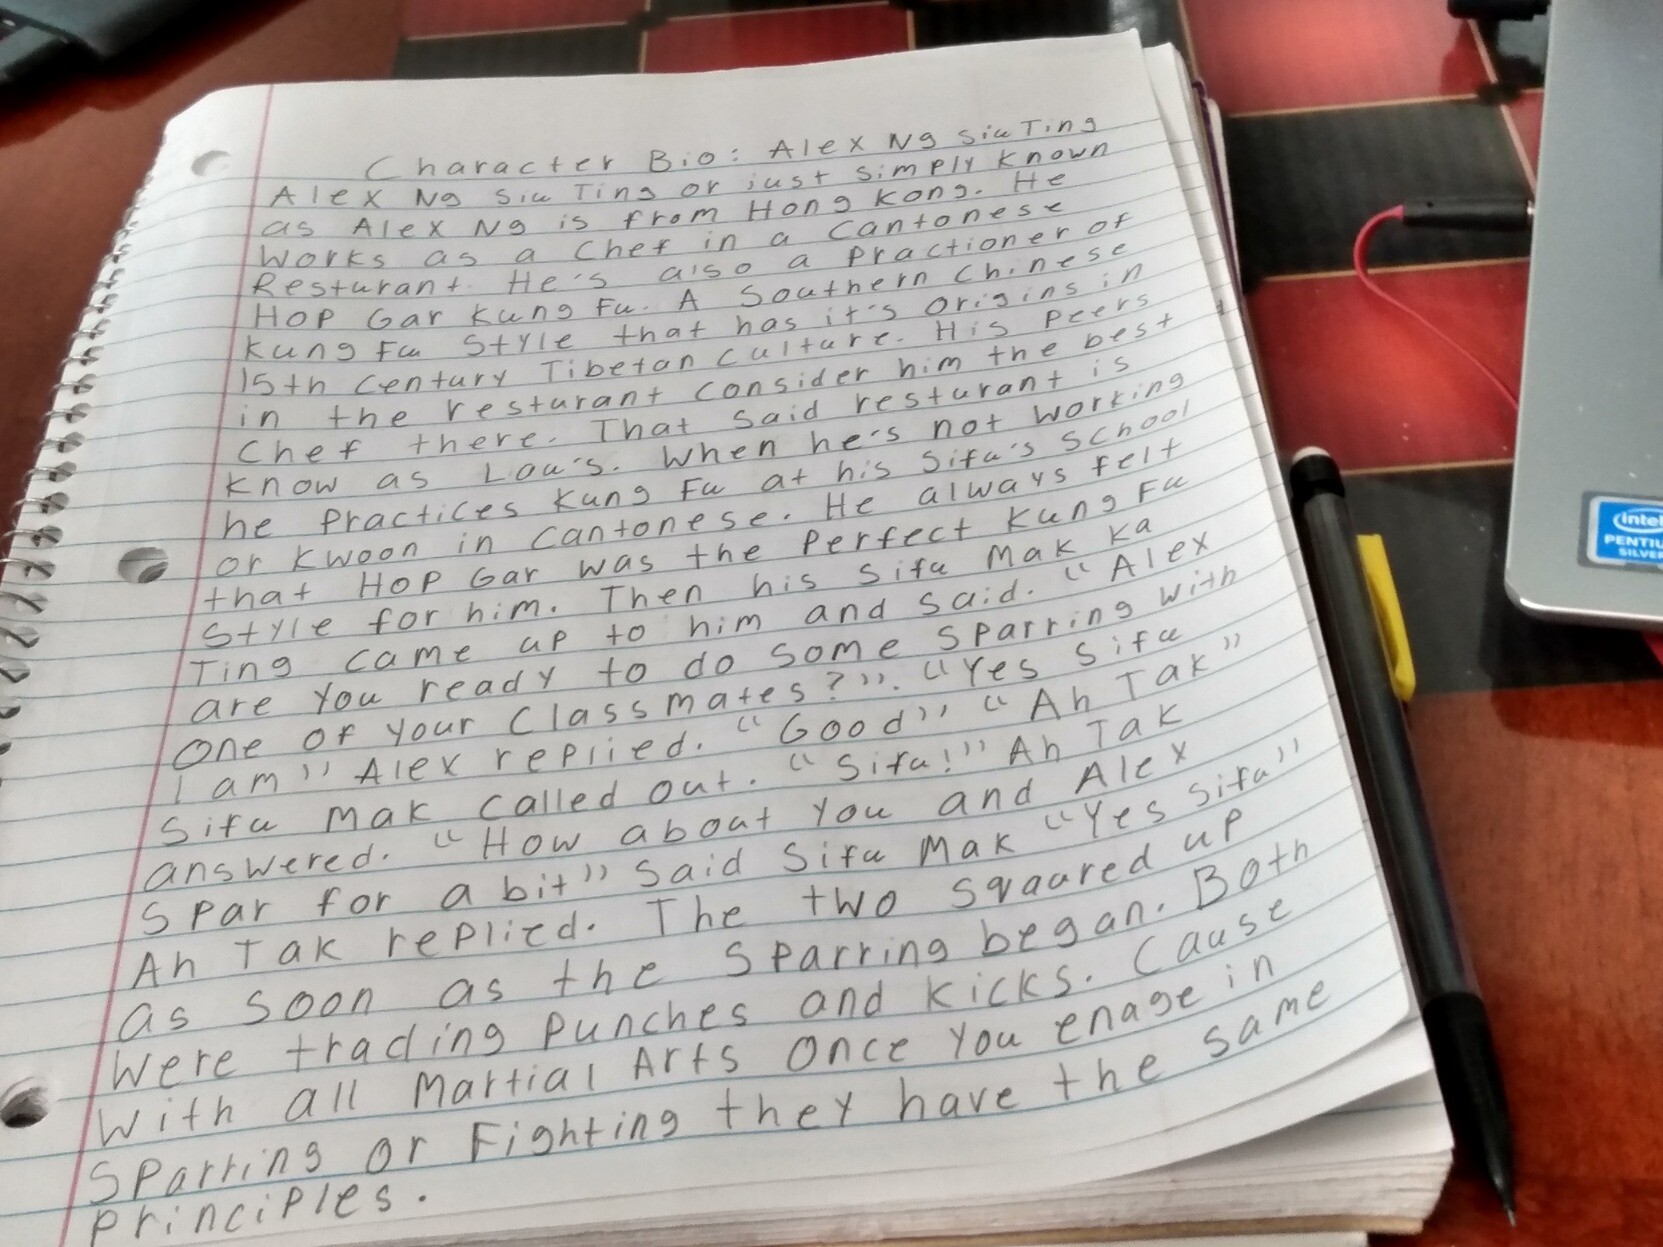 Character Bio: Alex Ng Siu Ting
Alex Ng Siu Ting or just simply known
as Alex Ng is from Hong Kong. He
Works as a Chef in a Cantonese
Resturant. He's also a Practioner of
Hop Gar Kung Fu. A Southern Chinese
Kung Fu Style that has it's Origins in
15th Century Tibetan Culture. His Peers
in the resturant consider him the best
Chef there. That Said resturant is
Know as Lou's. When he's not Working
he Practices Kung Fu at his Sifu's School
or Kwoon in Cantonese. He always felt
that Hop Gar was the Perfect Kung Fu
Style for him. Then his Sifu Mak Ka
Ting came up to him and Said. "Alex
are You ready to do some Sparring With
One of your Classmates?". "Yes Sifu
I am" Alex replied. "Good" "Ah Tak"
Sifu Mak Called out. "Sifu!" Ah Tak
answered. "How about You and Alex
Spar for a bit" Said Sifu Mak "Yes Sifu"
Ah Tak replied. The two Sqaured up
as Soon as the Sparring began. Both
Were trading Punches and Kicks. Cause
With all Martial Arts Once You enage in
Sparring or Fighting they have the same
Principles.
intel
PENTIU
SILVER